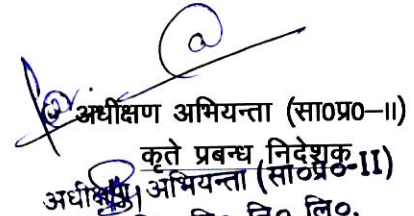 अधीक्षण अभियन्ता (सा०प्र०–II)
कृते प्रबन्ध निदेशक
अधीक्षण अभियन्ता (सा०प्र०-II)
नि० लि०.